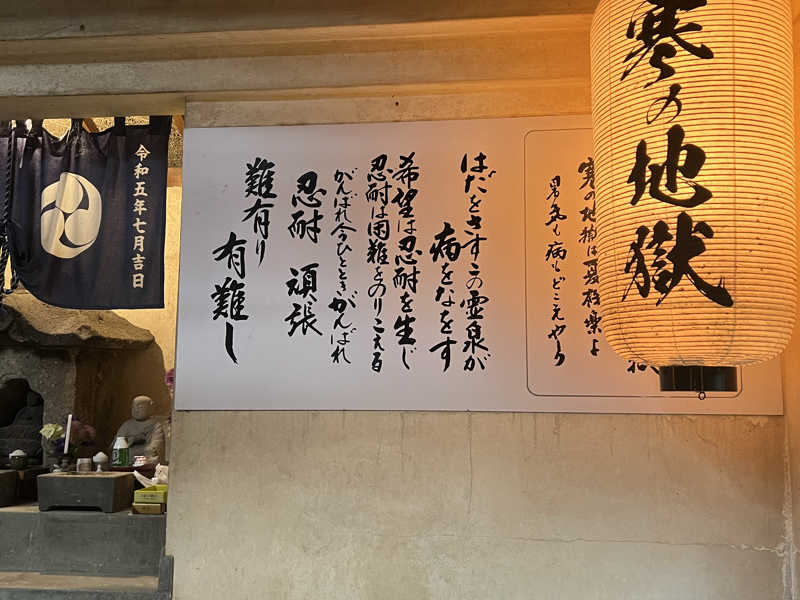 寒の地獄
寒の地獄は夏極楽よ
男気も病もどこえやら
はだをさすこの霊泉が
病をなをす
希望は忍耐を生じ
忍耐は困難をのりこえる
がんばれ今ひとときがんばれ
忍耐 頑張
難有り
有難し
令和五年七月吉日